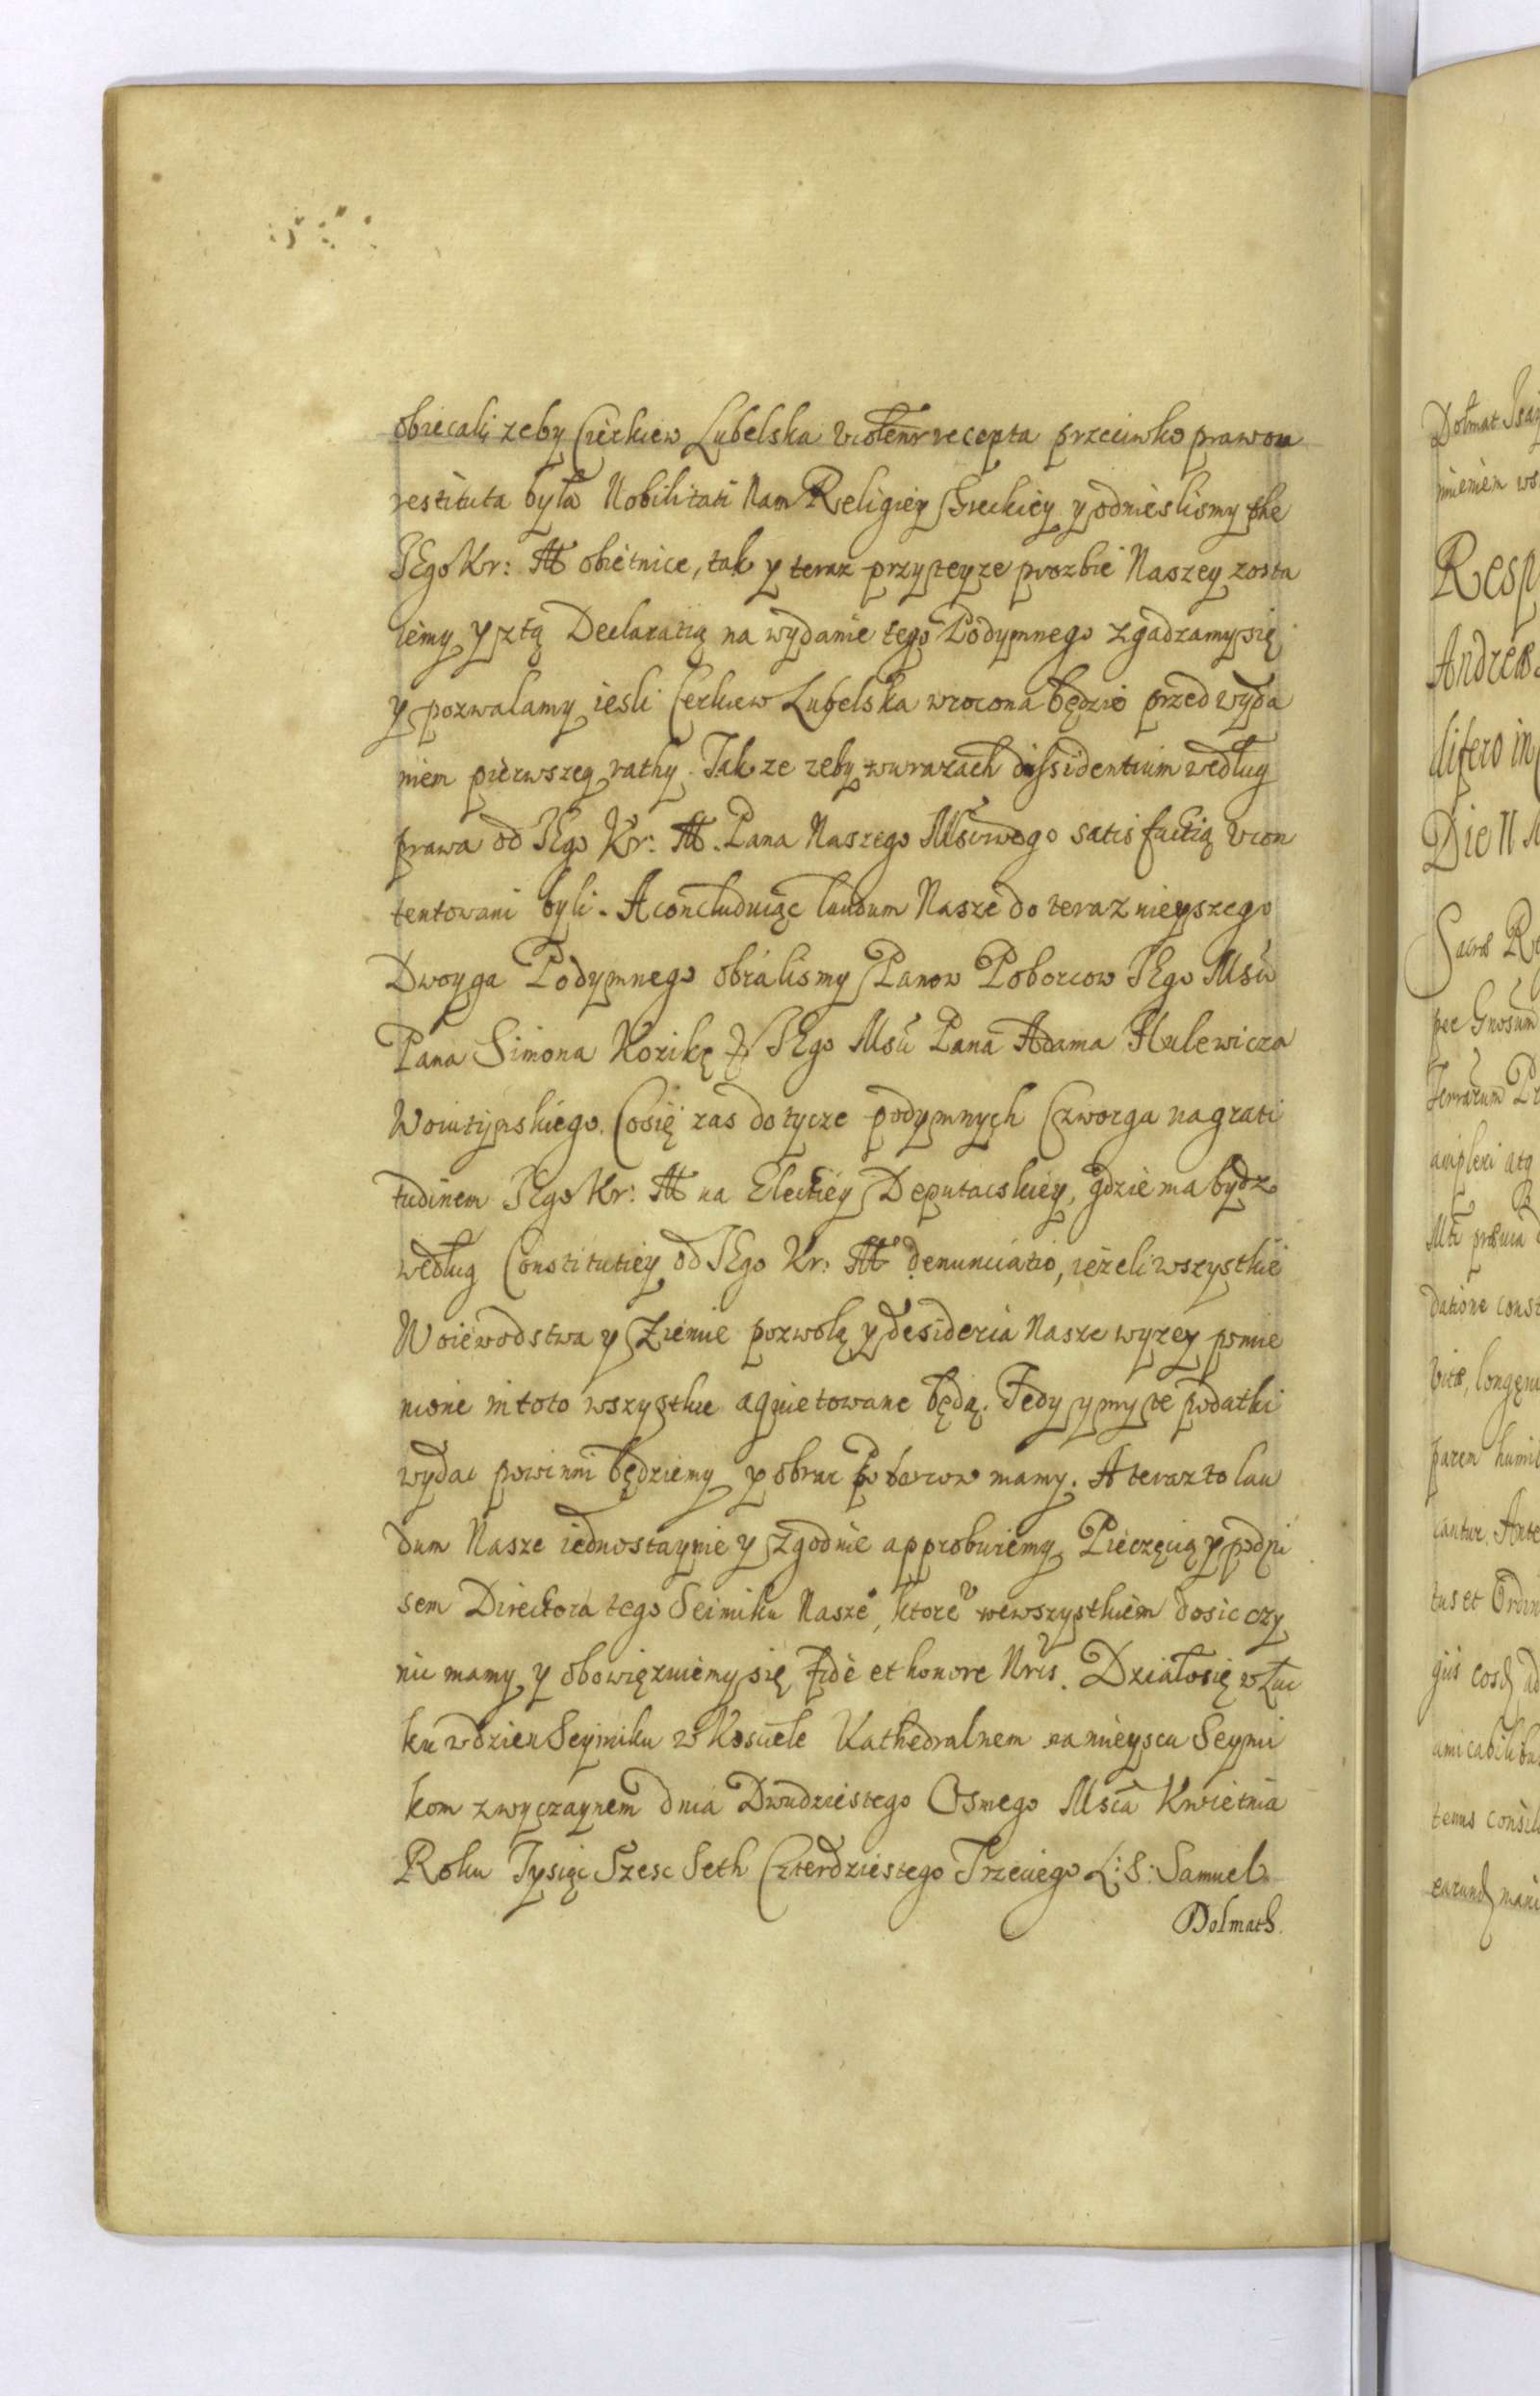 obiecali zeby Cierkiew Lubelska violenr recepta przeciwko prawou
restituta była Nobilitati Nam Religiey Greckiey y odnieslismy
IEgo Kr: M obietnice, tak y teraz przy teyze prozbie Naszey zosta
iemy y z tą Declaratią na wydanie tego Podymnego zgadzamy się
y pozwalamy iesli Cerkiew Lubelska wrocona będzie przed wyda
niem pierwszey rathy. Takze zeby w urazach dissidentium według
prawa od IEgo Kr: M. Pana Naszego Mściwego satisfactią vcon
tentowani byli. A concluduiąc laudum Nasze do teraznieyszego
Dwoyga Podymnego obralismy Panow Poborcow IEgo Mści
Pana Simona Kozikę y IEgo Mści Pana Adama Hulewicza
Woiutynskiego. Co się zas dotycze podymnych Czworga na grati
tudinem IEgo Kr: M na Electiey Deputackiey, gdzie ma bydz
według Constitutiey od IEgo Kr: M denunciatio, ieżeli wszystkie
Woiewodstwa y Ziemie pozwolą y desideria Nasze wyzey pomie
nione in toto wszystkie aquietowane będą. Tedy y my te podatki
wydac powinni będziemy y obrac Poborcow mamy. A teraz to lau
dum Nasze iednostaynie y zgodnie approbuiemy Pieczęcią y podpi
sem Directora tego Seimiku Nasze°, ktore° wewszystkiem dosic czy
nic mamy y obowięzuiemy się fide et honore Nris. Działo się w Łuc
ku w dzien Seymiku w Kosciele Kathedralnem na mieyscu Seymi
kom zwyczaynem dnia Dwudziestego Osmego Mscia Kwietnia
Roku Tysiąc Szesc Seth Czterdziestego Trzeciego L: S: Samuel
Dolmath.
Dolmat Isay
mieniem
Resp
Andreae
lifero in
Die II
Sacrae Re
per Gnosum
Terrarum Pr
ampleri atq
Mti praevia
datione const
vitae, longęui
parem humil
cantur. Ante
tus et Ordin
giis eosd ad
amicabilibus
tenus consil
earund mani